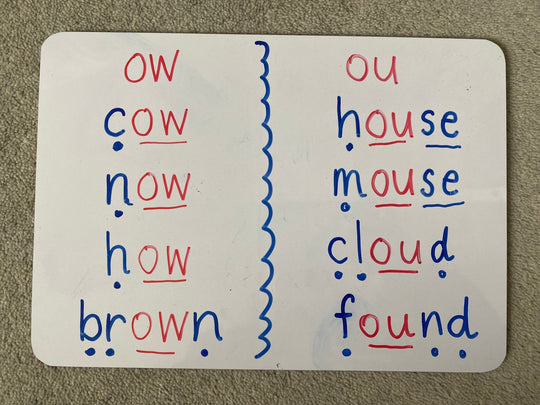 ow
cow
now
how
brown
ou
house
mouse
cloud
found